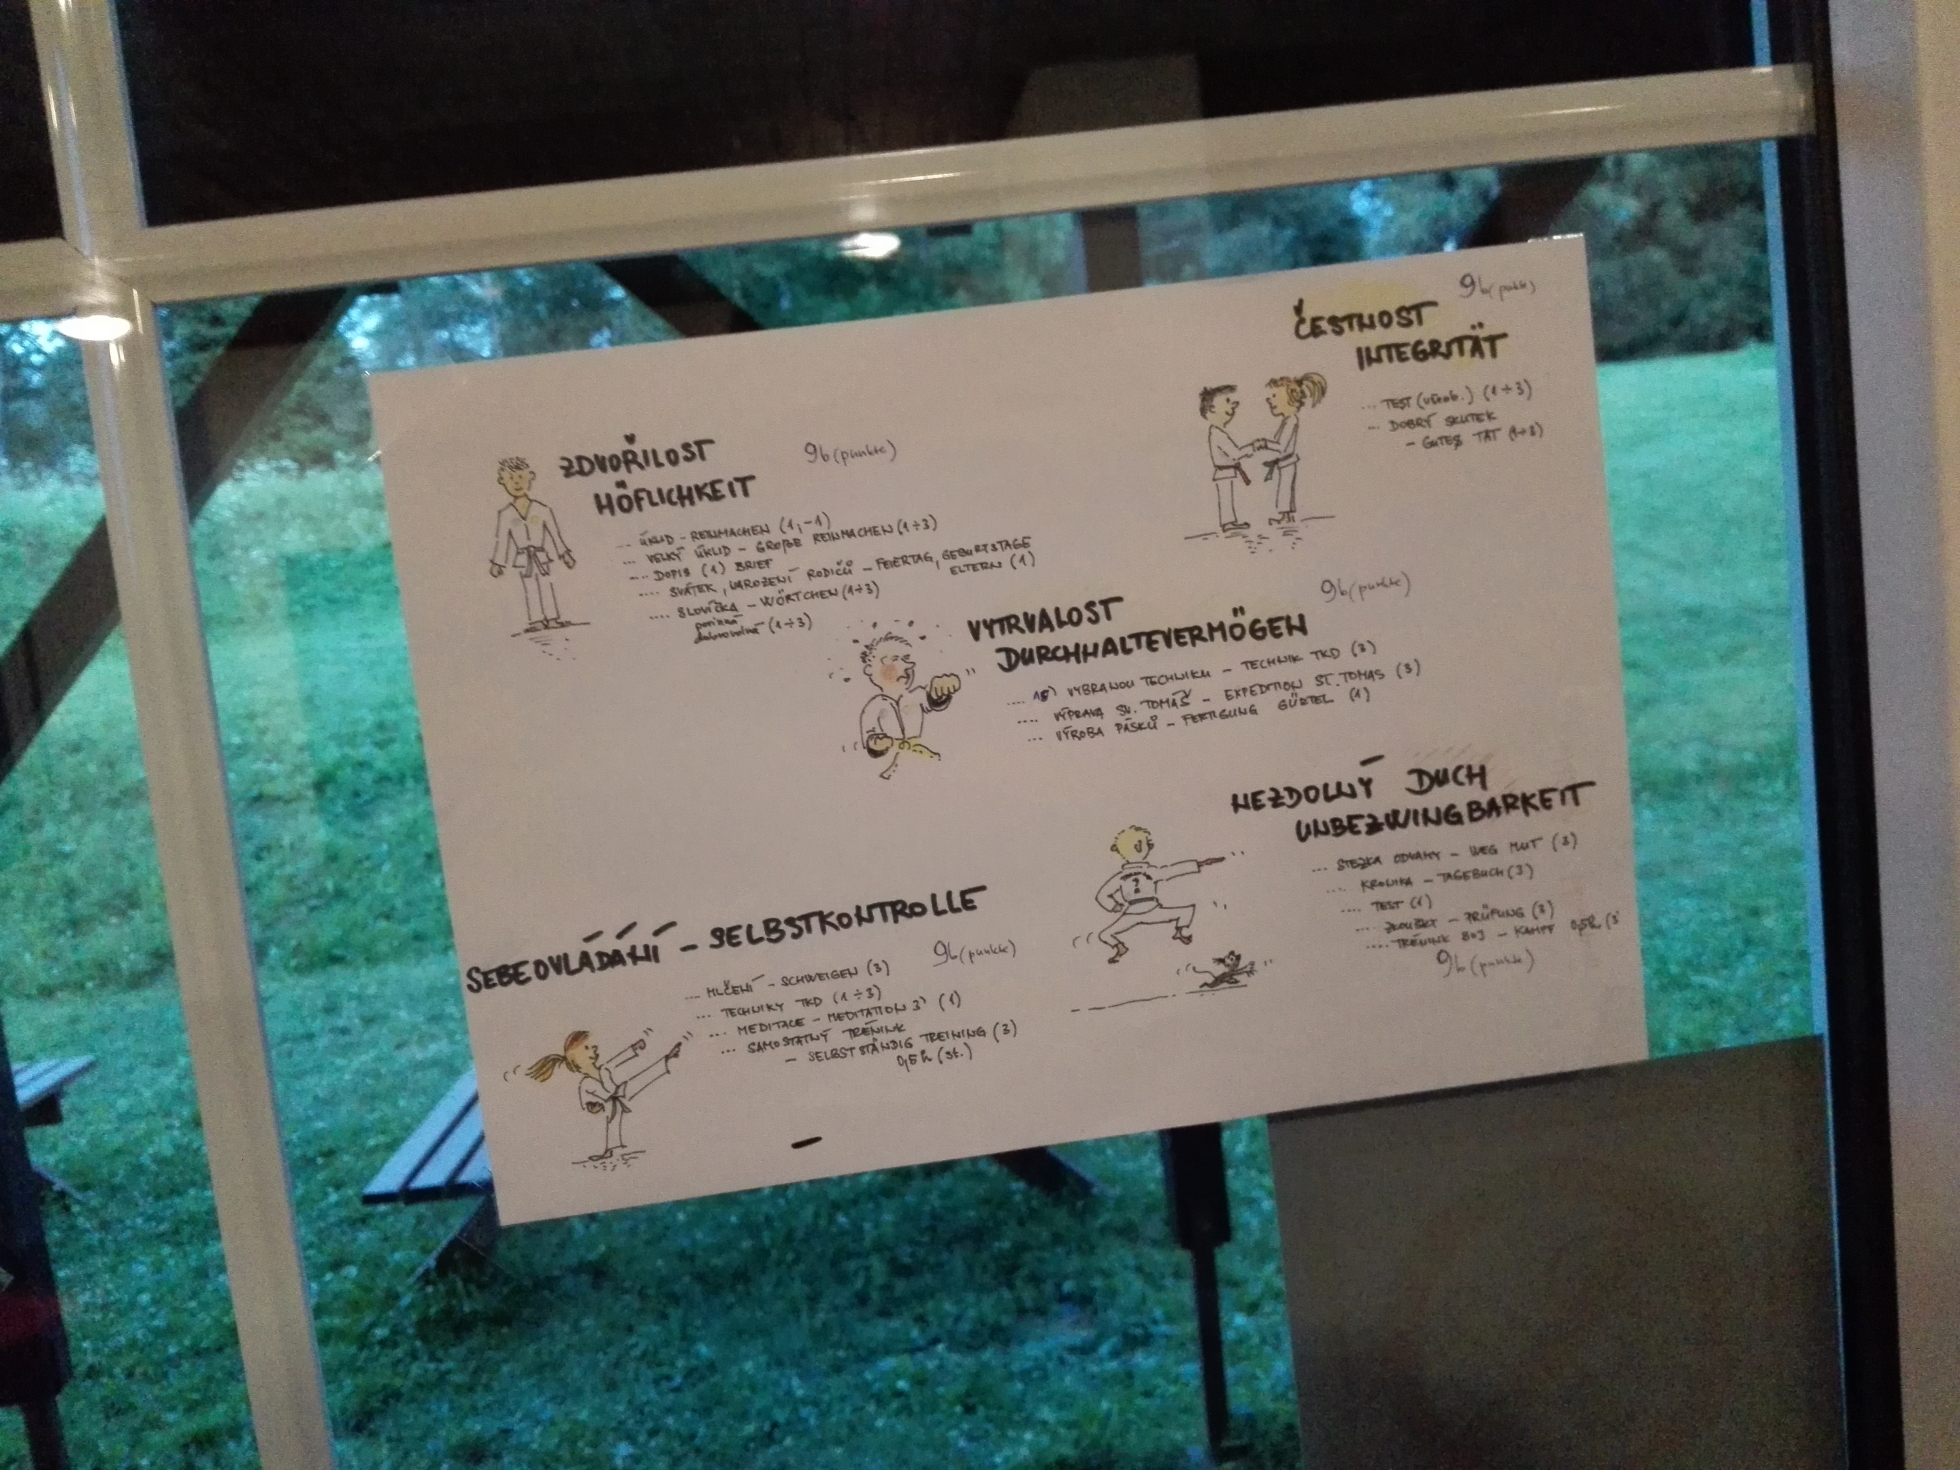 ZDVOŘILOST
HÖFLICHKEIT
9b (punkte)
... ÚKLID - REINMACHEN (1; -1)
... VELKÝ ÚKLID - GROßE REINMACHEN (1÷3)
.... DOPIS (1) BRIEF
.... SVÁTEK, NAROZENÍ RODIČŮ - FEIERTAG, GEBURTSTAGE
ELTERN (1)
.... SLOVÍČKA - WÖRTCHEN (1÷3)
povinná
dobrovolná (1÷3)
9b (punkte)
ČESTNOST
INTEGRITÄT
... TEST (1÷3)
... DOBRÝ SKUTEK
- GUTES TAT (1÷3)
9b (punkte)
VYTRVALOST
DURCHHALTEVERMÖGEN
.... VYBRANOU TECHNIKU - TECHNIK TKD (3)
.... VÝPRAVA SV. TOMÁŠ - EXPEDITION ST. TOMAS (3)
... VÝROBA PÁSKŮ - FERTIGUNG GÜRTEL (1)
NEZDOLNÝ DUCH
UNBEZWINGBARKEIT
... STEZKA ODVAHY - WEG MUT (3)
.... KRONIKA - TAGEBUCH (3)
.... TEST (1)
... ZKOUŠKY - PRÜFUNG (3)
.... TRÉNINK BOJ - KAMPF 0,5h (3
9b (punkte)
SEBEOVLÁDÁNÍ - SELBSTKONTROLLE
9b (punkte)
... MLČENÍ - SCHWEIGEN (3)
... TECHNIKY TKD (1÷3)
... MEDITACE - MEDITATION 3' (1)
... SAMOSTATNÝ TRÉNINK
- SELBSTSTÄNDIG TREINING (3)
0,5h (st.)